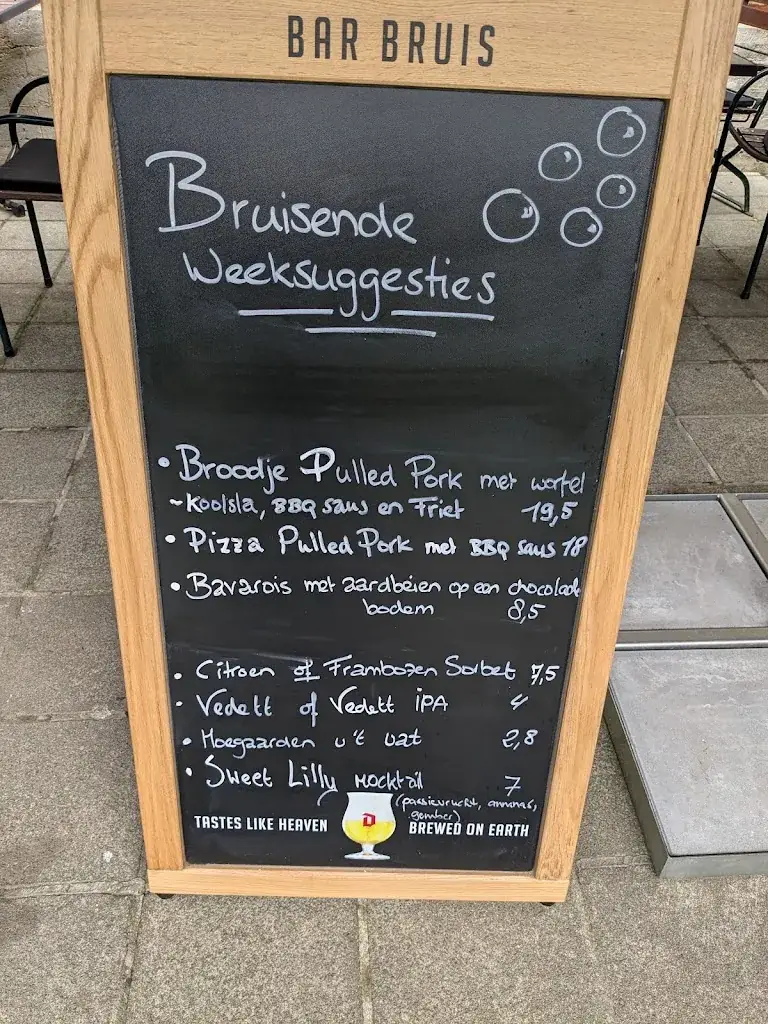 BAR BRUIS
Bruisende
Weeksuggesties
• Broodje Pulled Pork met wortel
~Koolsla, BBQ saus en Friet 19,5
• Pizza Pulled Pork met BBQ saus 18
• Bavarois met aardbeien op een chocolade
bodem 8,5
• Citroen of Frambozen Sorbet 7,5
• Vedett of Vedett IPA 4
• Hoegaarden v't vat 2,8
• Sweet Lilly mocktail 7
(passievrucht, ananas,
gember)
TASTES LIKE HEAVEN D BREWED ON EARTH